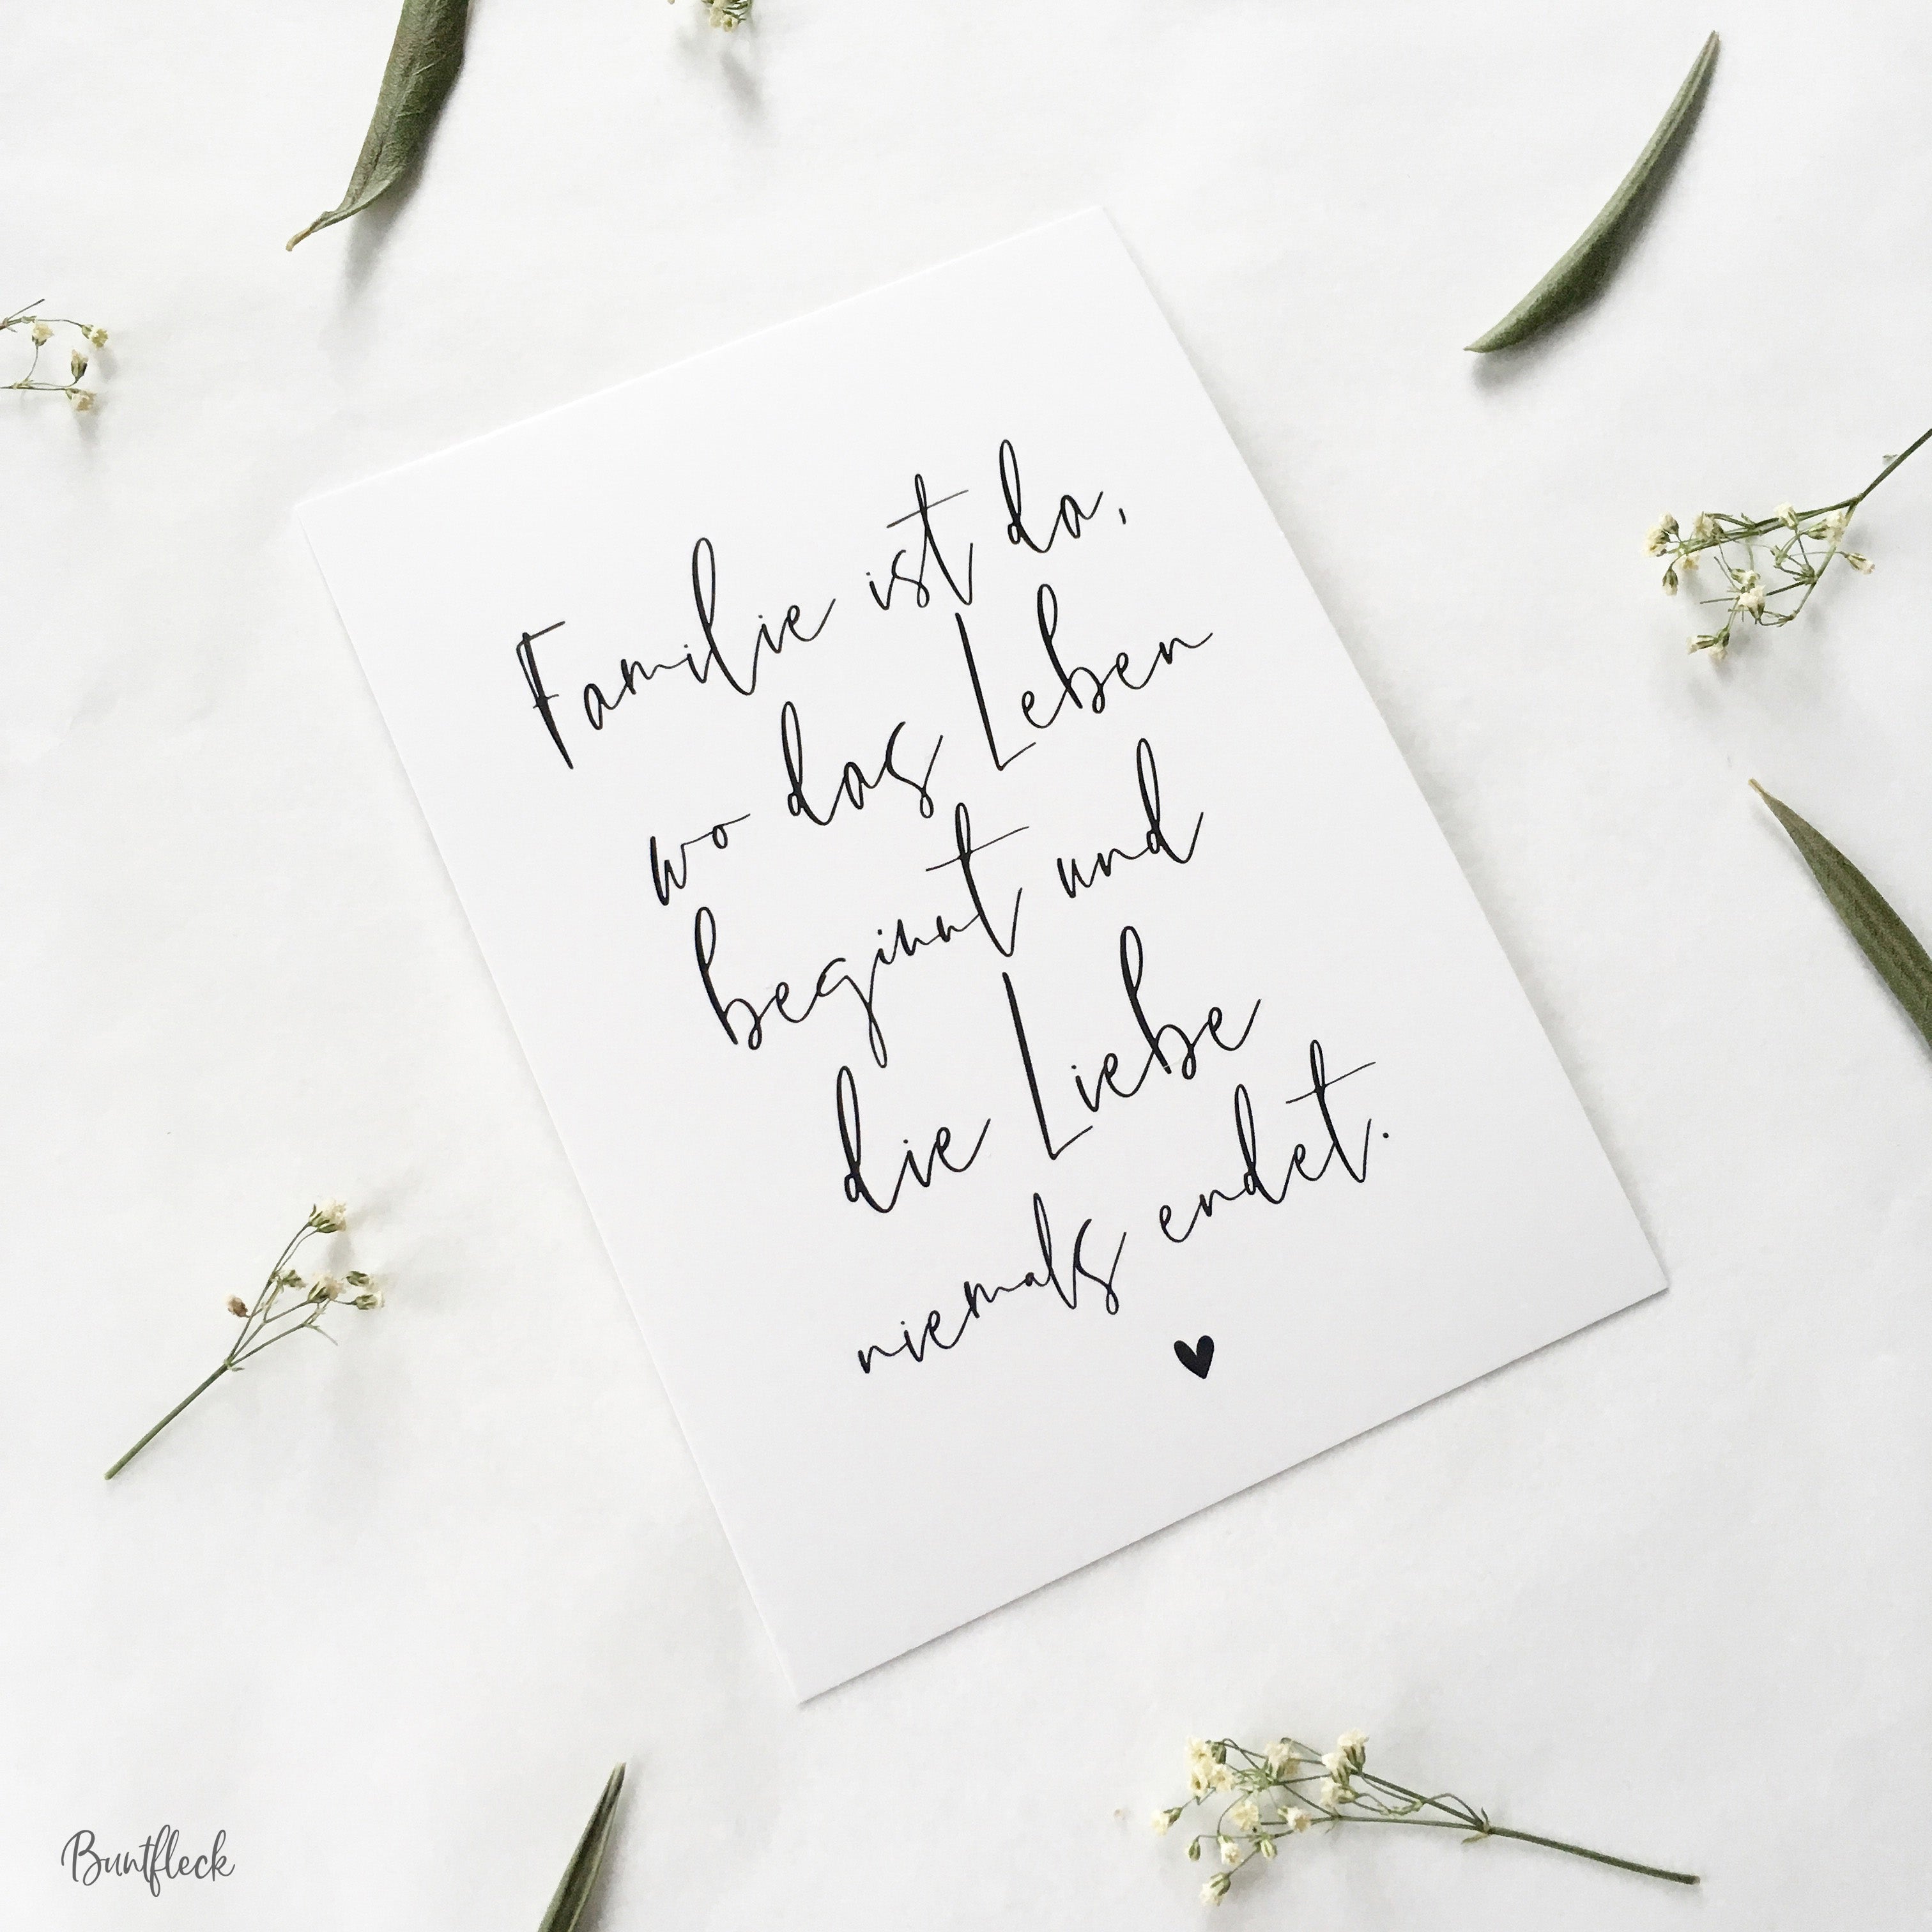 Familie ist da,
wo das Leben
beginnt und
die Liebe
niemals endet.
Buntfleck